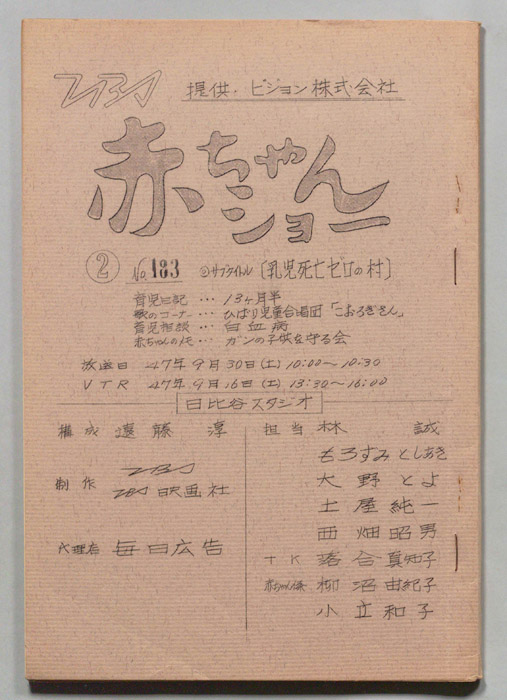 TBS 提供・ピジョン株式会社
赤ちゃん
ショー
② No.183 ◎サブタイトル〔乳児死亡ゼロの村〕
育児日記 … 13ヶ月半
歌のコーナー … ひばり児童合唱団「こおろぎさん」
育児相談 … 白血病
赤ちゃんのメモ … ガンの子供を守る会
放送日 47年9月30日(土) 10:00〜10:30
VTR 47年9月16日(土) 13:30〜16:00
日比谷スタジオ
構成 遠藤 淳
制作 TBS
TBS映画社
代理店 毎日広告
担当 林 誠
もろすみとしあき
大野とよ
土屋純一
西畑昭男
TK 落合真知子
赤ちゃん係 柳沼由紀子
小立和子